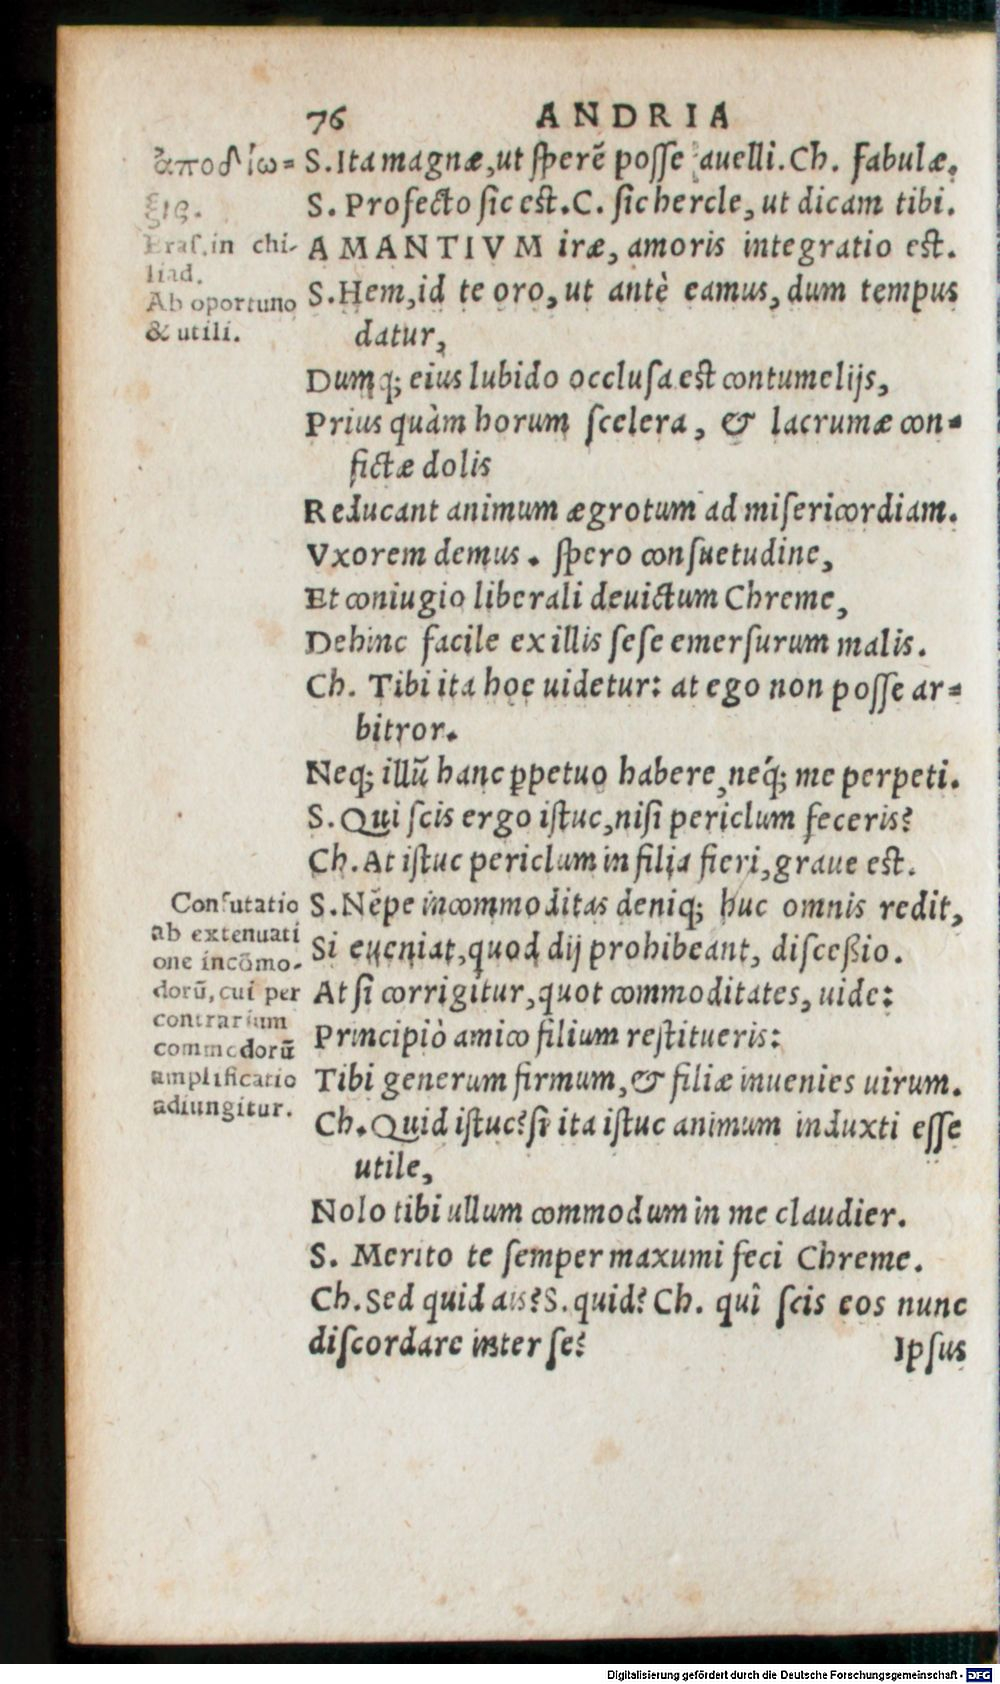 76 ANDRIA
ἀποδίω=
ξις.
Eras. in chi-
liad.
Ab oportuno
& utili.
S. Ita magnæ, ut sperē posse auelli. Ch. fabulæ.
S. Profecto sic est. C. sic hercle, ut dicam tibi.
AMANTIVM iræ, amoris integratio est.
S. Hem, id te oro, ut antè eamus, dum tempus
datur,
Dumq; eius lubido occlusa est contumelijs,
Prius quàm horum scelera, & lacrumæ con=
fictæ dolis
Reducant animum ægrotum ad misericordiam.
Vxorem demus. spero consuetudine,
Et coniugio liberali deuictum Chreme,
Dehinc facile ex illis sese emersurum malis.
Ch. Tibi ita hoc uidetur: at ego non posse ar=
bitror.
Neq; illū hanc ꝑpetuo habere, neq́; me perpeti.
S. Qui scis ergo istuc, nisi periclum feceris?
Ch. At istuc periclum in filia fieri, graue est.
Confutatio
ab extenuati
one incōmo-
dorū, cui per
contrarium
commodorū
amplificatio
adiungitur.
S. Nēpe incommoditas deniq; huc omnis redit,
Si eueniat, quod dij prohibeant, disceßio.
At si corrigitur, quot commoditates, uide:
Principiò amico filium restitueris:
Tibi generum firmum, & filiæ inuenies uirum.
Ch. Quid istuc? si ita istuc animum induxti esse
utile,
Nolo tibi ullum commodum in me claudier.
S. Merito te semper maxumi feci Chreme.
Ch. Sed quid ais? S. quid? Ch. quî scis eos nunc
discordare inter se?
Ipsus
Digitalisierung gefördert durch die Deutsche Forschungsgemeinschaft - DFG